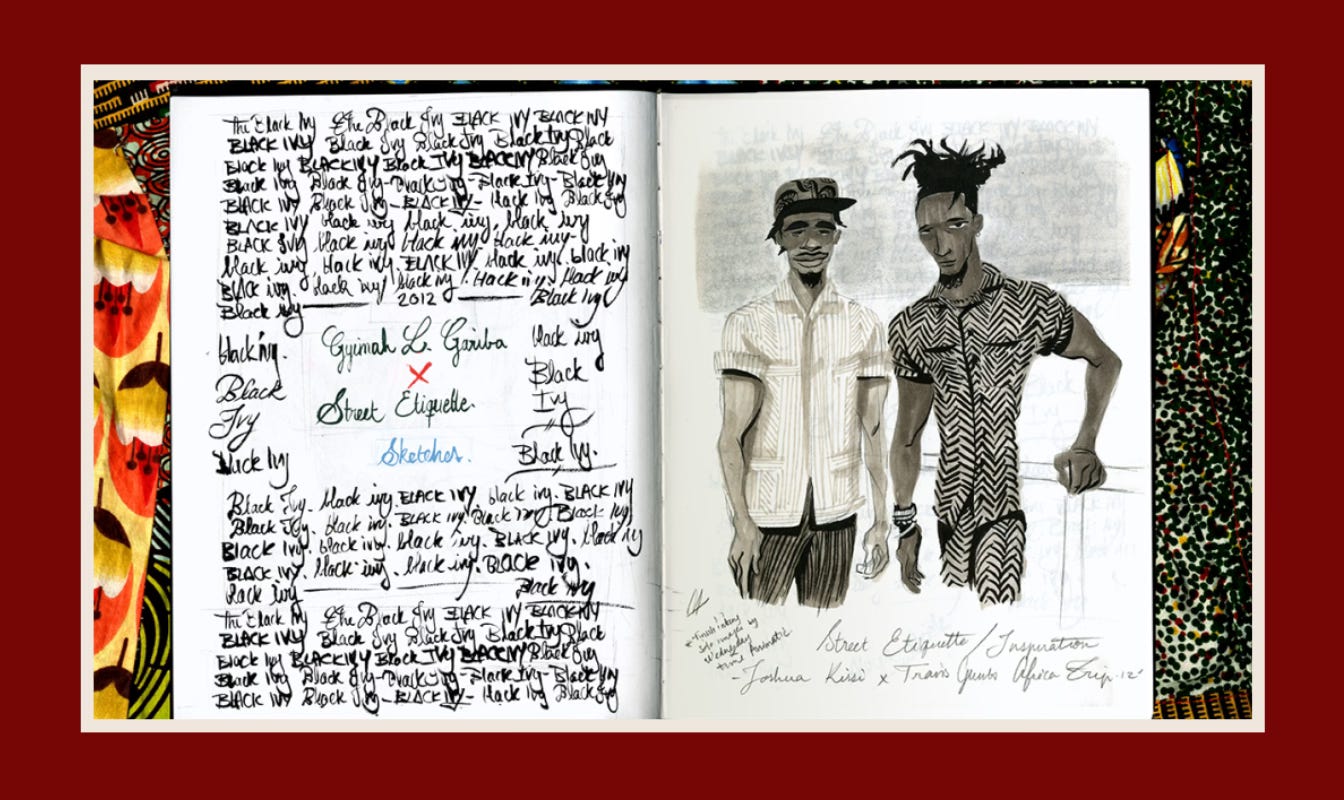 The Black Ivy The Black Ivy BLACK IVY BLACK IVY
BLACK IVY Black Ivy Black Ivy Black Ivy Black
Black Ivy BLACK IVY Black Ivy BLACK IVY Black Ivy
Black Ivy Black Ivy - Black Ivy - Black Ivy - Black Ivy
BLACK IVY Black Ivy - BLACK IVY - black Ivy Black Ivy
BLACK IVY black ivy black ivy, black ivy
BLACK IVY black ivy black ivy black ivy -
black ivy, black ivy. BLACK IVY. black ivy. black ivy
BLACK ivy. black ivy black ivy. black ivy. black ivy
Black ivy 2012 Black Ivy
black ivy.
Black
Ivy
black Ivy
Gyimah L. Gariba
X
Street Etiquette.
Sketches.
black ivy
Black
Ivy
Black Ivy.
Black Ivy. black ivy BLACK IVY. black ivy. BLACK IVY
Black Ivy. black ivy. BLACK IVY. Black Ivy Black Ivy
BLACK IVY. black ivy. black ivy. BLACK IVY. black ivy
BLACK IVY. black ivy. black ivy. BLACK IVY.
black ivy Black Ivy
The Black Ivy The Black Ivy BLACK IVY BLACK IVY
BLACK IVY Black Ivy Black Ivy Black Ivy Black
Black Ivy BLACK IVY Black Ivy BLACK IVY Black Ivy
Black Ivy Black Ivy - Black Ivy - Black Ivy - Black Ivy
BLACK IVY Black Ivy - BLACK IVY - black Ivy Black Ivy
images by
Wednesday
time
Street Etiquette / Inspiration
- Joshua Kissi x Travis Gumbs Africa Trip. 12'